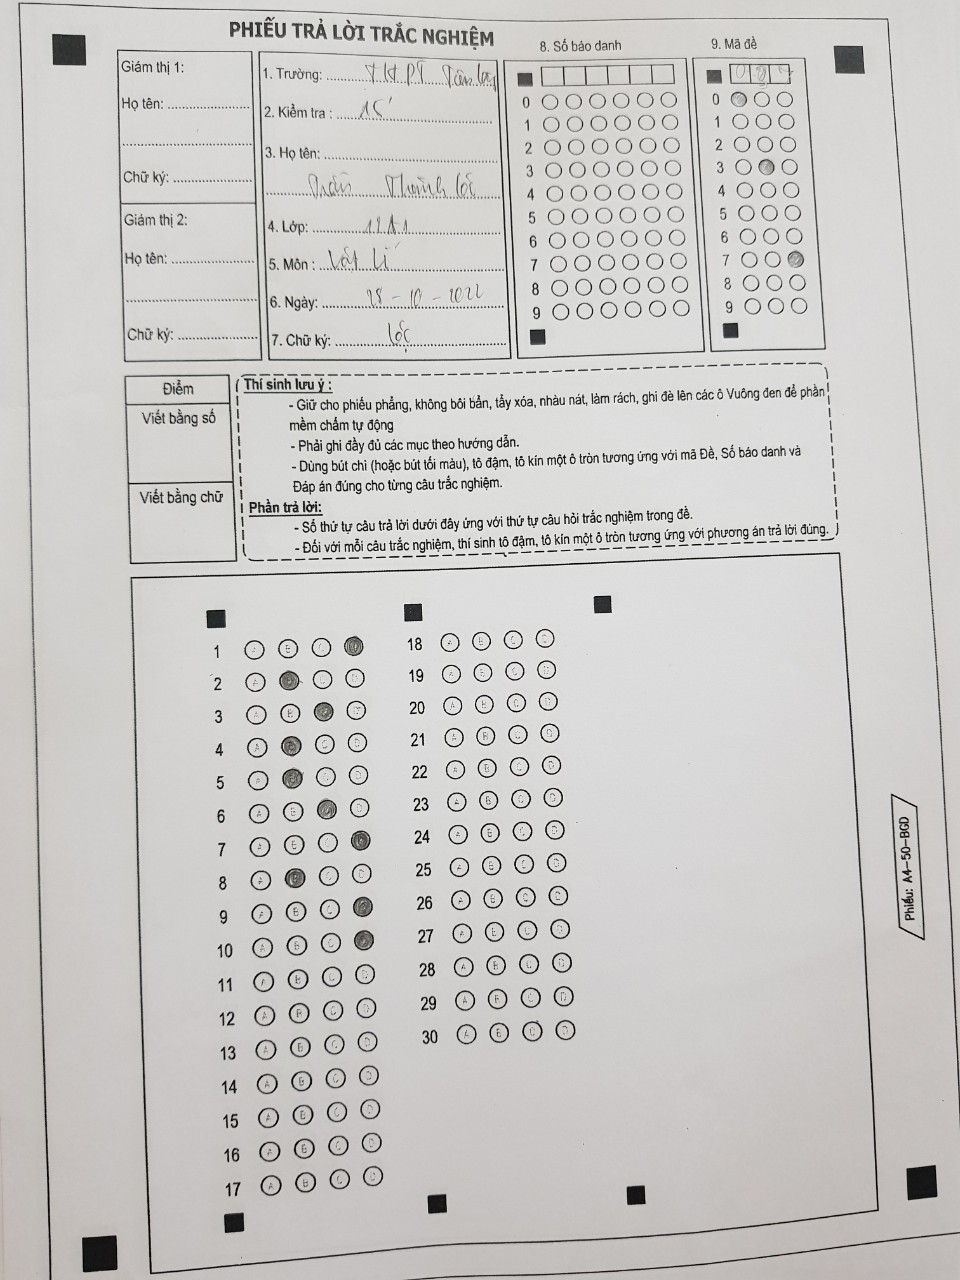 PHIẾU TRẢ LỜI TRẮC NGHIỆM
Giám thị 1:
Họ tên:
Chữ ký:
Giám thị 2:
Họ tên:
Chữ ký:
1. Trường: THPT
2. Kiểm tra : 15'
3. Họ tên:
Trần Thành Lộc
4. Lớp: 12A1
5. Môn : Vật Lí
6. Ngày: 28 - 10 - 2022
7. Chữ ký: Lộc
8. Số báo danh
0
1
2
3
4
5
6
7
8
9
9. Mã đề
0
1
2
3
4
5
6
7
8
9
Điểm
Viết bằng số
Viết bằng chữ
Thí sinh lưu ý :
- Giữ cho phiếu phẳng, không bôi bẩn, tẩy xóa, nhàu nát, làm rách, ghi đè lên các ô Vuông đen để phần
mềm chấm tự động
- Phải ghi đầy đủ các mục theo hướng dẫn.
- Dùng bút chì (hoặc bút tối màu), tô đậm, tô kín một ô tròn tương ứng với mã Đề, Số báo danh và
Đáp án đúng cho từng câu trắc nghiệm.
Phần trả lời:
- Số thứ tự câu trả lời dưới đây ứng với thứ tự câu hỏi trắc nghiệm trong đề.
- Đối với mỗi câu trắc nghiệm, thí sinh tô đậm, tô kín một ô tròn tương ứng với phương án trả lời đúng.
1 A B C
2 A C D
3 A B D
4 A C D
5 A C D
6 A B D
7 A B C
8 A C D
9 A B C
10 A B C
11 A B C D
12 A B C D
13 A B C D
14 A B C D
15 A B C D
16 A B C D
17 A B C D
18 A B C D
19 A B C D
20 A B C D
21 A B C D
22 A B C D
23 A B C D
24 A B C D
25 A B C D
26 A B C D
27 A B C D
28 A B C D
29 A B C D
30 A B C D
Phiếu: A4-50-BGD